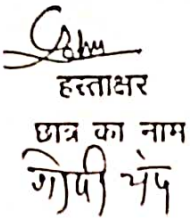 हस्ताक्षर
छात्र का नाम
गोपी चंद